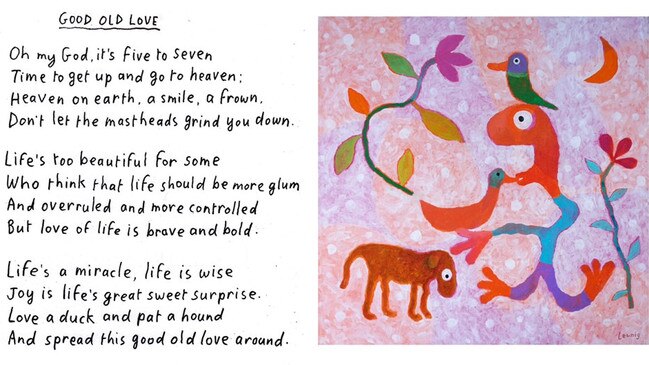 GOOD OLD LOVE
Oh my God, it's five to seven
Time to get up and go to heaven:
Heaven on earth, a smile, a frown.
Don't let the mastheads grind you down.
Life's too beautiful for some
Who think that life should be more glum
And overruled and more controlled
But love of life is brave and bold.
Life's a miracle, life is wise
Joy is life's great sweet surprise.
Love a duck and pat a hound
And spread this good old love around.
Leunig